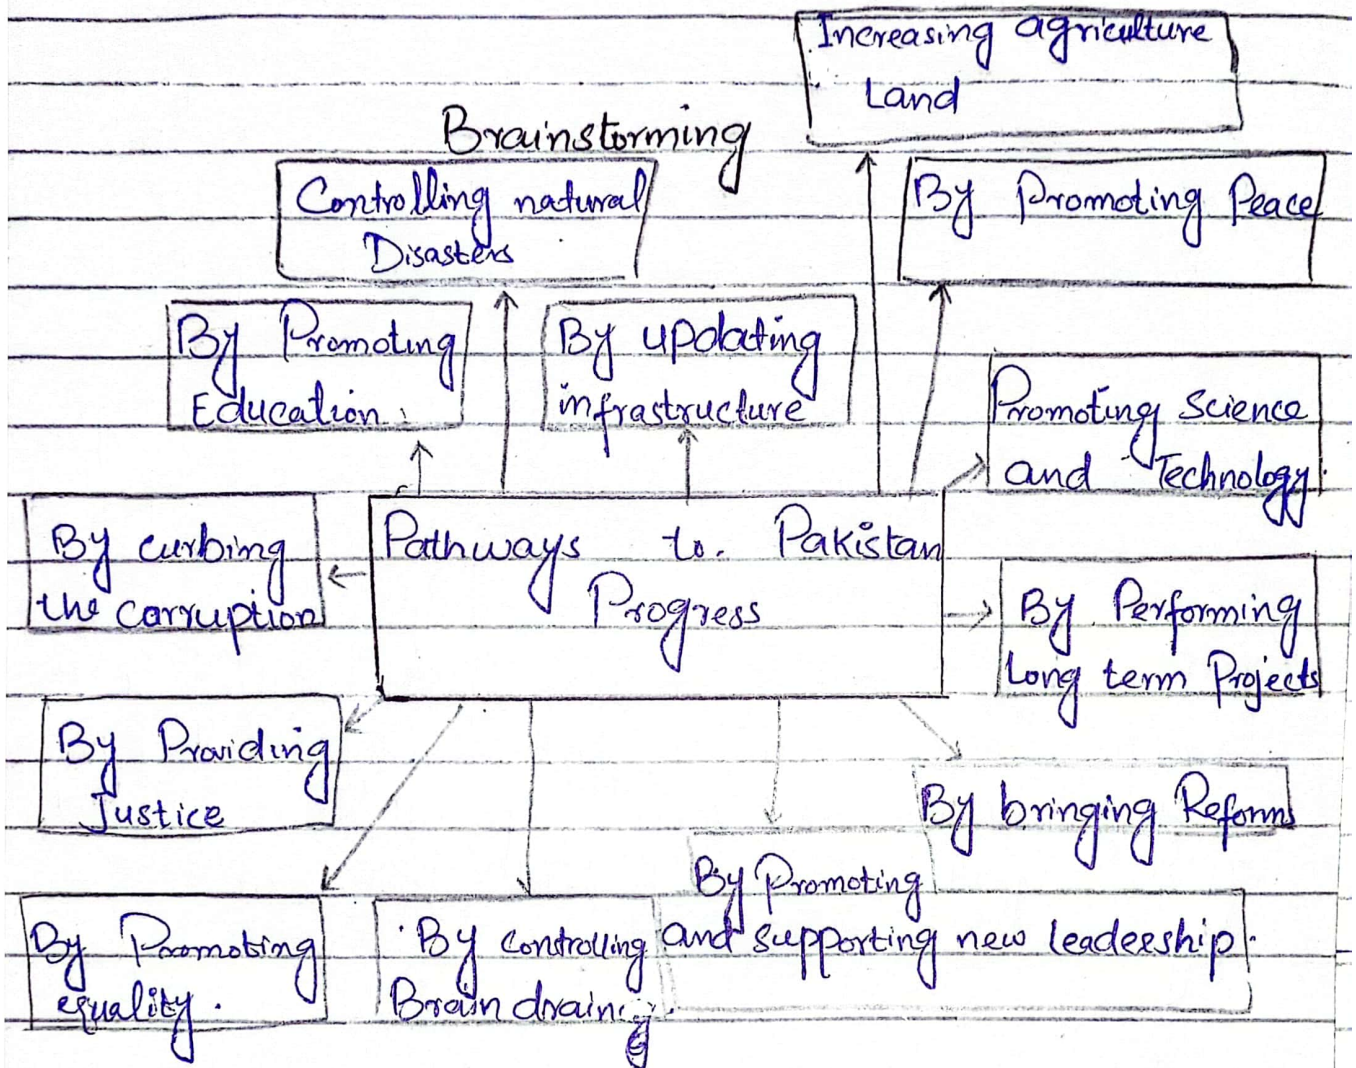 Increasing agriculture
Land
Brainstorming
Controlling natural
Disasters
By Promoting Peace
By Promoting
Education
By updating
infrastructure
Promoting Science
and Technology.
By curbing
the carruption
Pathways to. Pakistan
Progress
By Performing
Long term Projects
By Providing
Justice
By bringing Reforms
By Promoting
and supporting new leadership.
By Promoting
equality.
By controlling
Brain draing